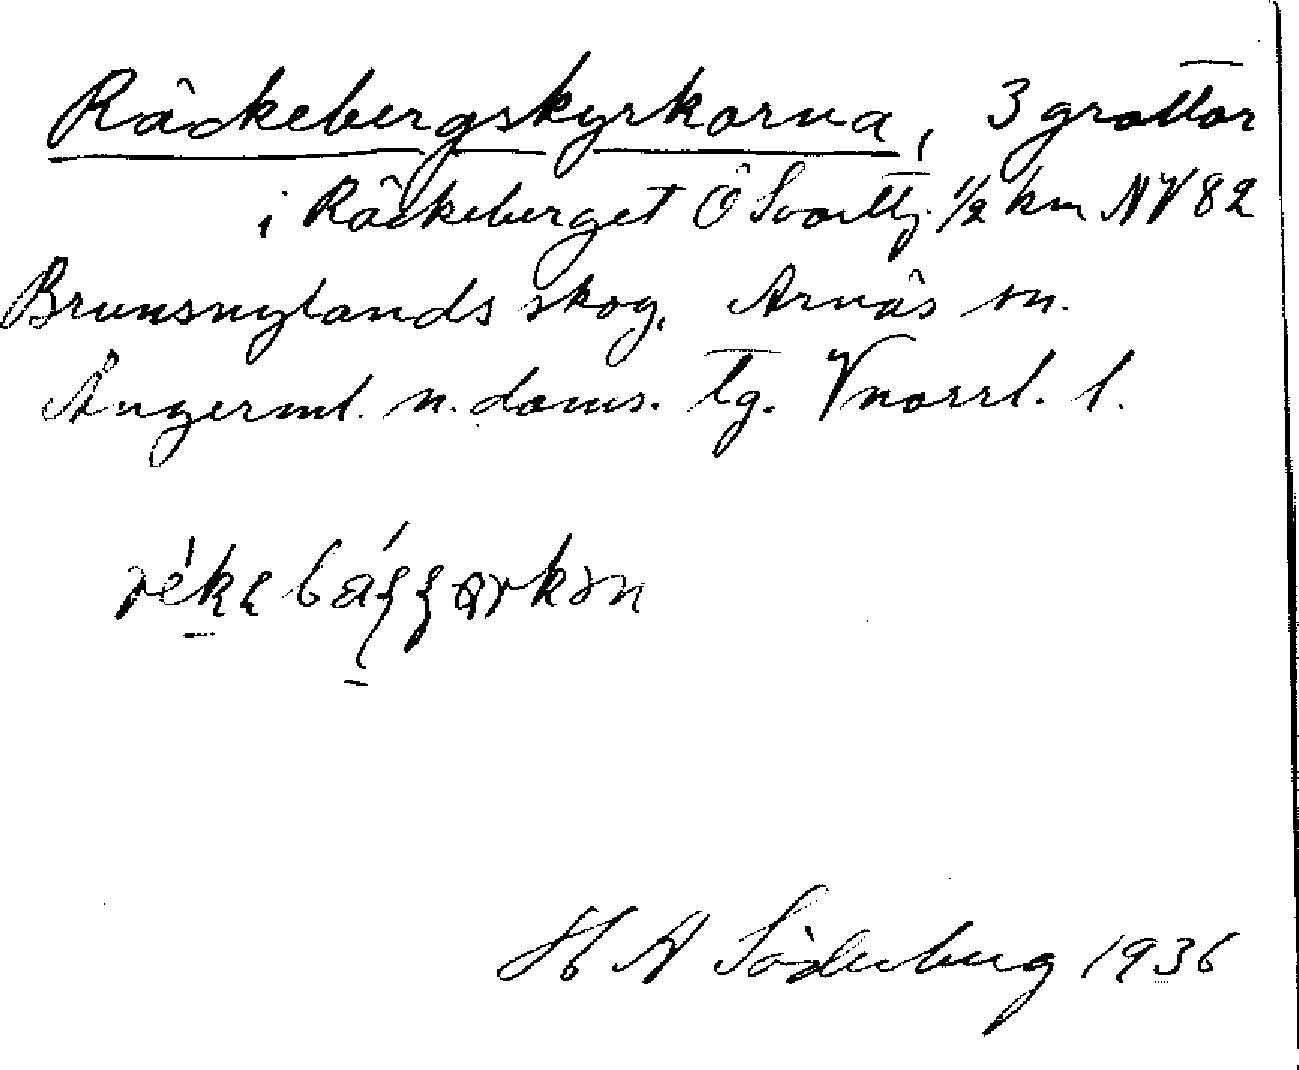 Räckebergskyrkorna, 3 grottor
i Räckeberget Ö Svarttj. ½ km NV 82
Brunsnylands skog, Arnäs sn.
Ångerml. n. doms. tg. Vnorrl. l.
H A Söderberg 1936